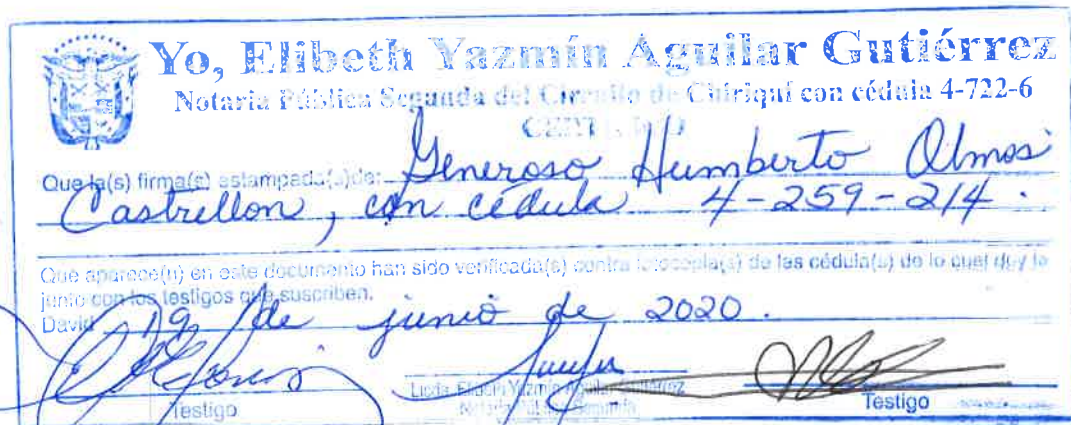 Yo, Elibeth Yazmín Aguilar Gutiérrez
Notaria Pública Segunda del Circuito de Chiriquí con cédula 4-722-6
CERTIFICO
Que la(s) firma(s) estampada(s)de: Generoso Humberto Olmos
Castrellon, con cédula 4-259-214.
Que aparece(n) en este documento han sido verificada(s) contra fotocopia(s) de las cédula(s) de lo cual doy fe
junto con los testigos que suscriben.
David 19 de junio de 2020.
Licda. Elibeth Yazmín Aguilar Gutiérrez
Testigo Notaria Pública Segunda Testigo